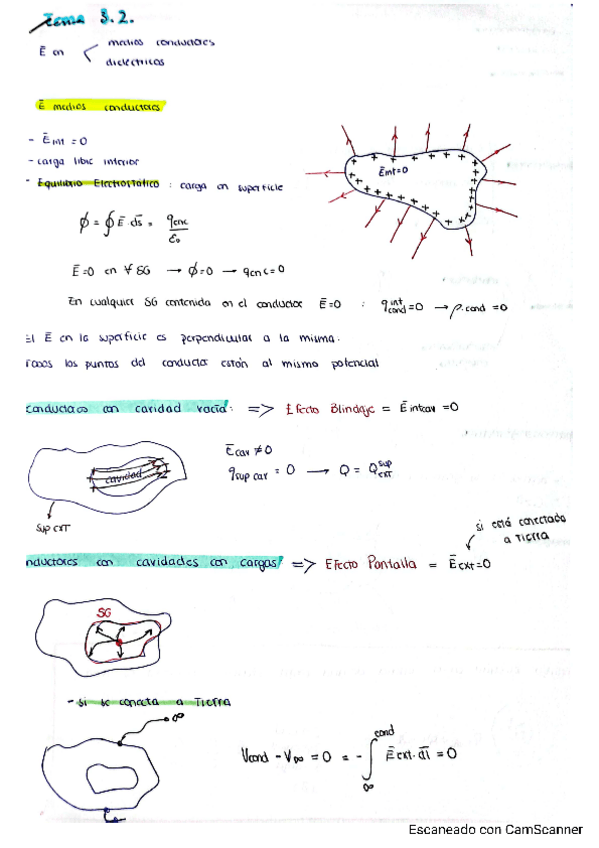 Tema 3.2.
Ē en
medios conductores
dieléctricos
Ē medios conductores
- Ē int = 0
- carga libre interior
- Equilibrio Electrostático : carga en superficie
Ē int=0
ϕ = ∮ Ē · d̄s = q enc / ε₀
Ē=0 en ∀ SG → ϕ=0 → q enc=0
En cualquier SG contenida en el conductor Ē=0 : q int cond =0 → ρ. cond =0
El Ē en la superficie es perpendicular a la misma.
Todos los puntos del conductor están al mismo potencial
Conductores con cavidad vacía: => Efecto Blindaje = Ē int cav =0
Ē cav ≠ 0
cavidad
q sup cav = 0 → Q = Q sup ext
sup ext
si está conectado
a Tierra
nductores con cavidades con cargas: => Efecto Pantalla = Ē ext=0
SG
- si se conecta a Tierra
∞
Vcond - V∞ = 0 = - ∫ cond ∞ Ē ext · d̄l = 0
Escaneado con CamScanner